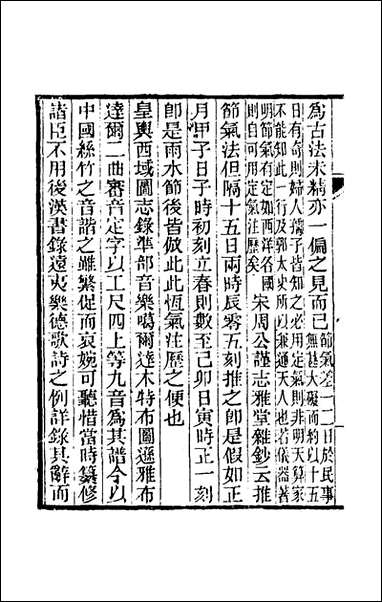 為古法未精亦一偏之見而已
節氣差一二日於民事
無甚大礙而約以十五
日有奇則婦人孺子皆知之必用定氣則非明天算家
不能知此一行及郭太史所以兼通天人也若儀器著
明節氣有定如西洋各國
則自可用定氣注歷矣
宋周公謹志雅堂雜鈔云推
節氣法但隔十五日兩時辰零五刻推之卽是假如正
月甲子日子時初刻立春則數至己卯日寅時正一刻
卽是雨水節後皆倣此此恆氣注歷之便也
皇輿西域圖志錄準部音樂噶爾達木特布圖遜雅布
達爾二曲審音定字以工尺四上等九音為其譜今以
中國絲竹之音諧之雖繁促而哀婉可聽惜當時纂修
諸臣不用後漢書錄遠夷樂德歌詩之例詳錄其辭而